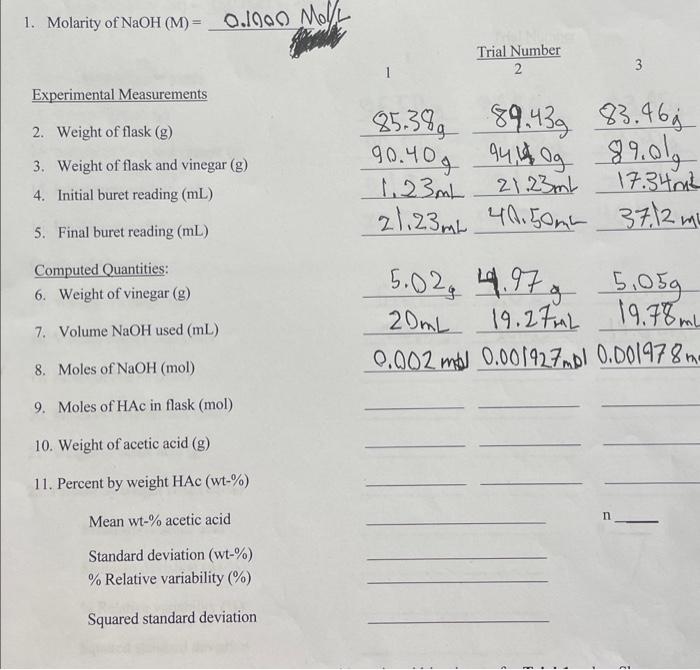 1. Molarity of NaOH (M) = 0.1000 Mol/L
Trial Number
1 2 3
Experimental Measurements
2. Weight of flask (g) 85.38g 89.43g 83.96g
3. Weight of flask and vinegar (g) 90.40g 94.40g 89.01g
4. Initial buret reading (mL) 1.23mL 21.23mL 17.34mL
5. Final buret reading (mL) 21.23mL 40.50mL 37.12 mL
Computed Quantities:
6. Weight of vinegar (g) 5.02g 4.97g 5.05g
7. Volume NaOH used (mL) 20mL 19.27mL 19.78mL
8. Moles of NaOH (mol) 0.002 mol 0.001927mol 0.001978m
9. Moles of HAc in flask (mol)
10. Weight of acetic acid (g)
11. Percent by weight HAc (wt-%)
Mean wt-% acetic acid n
Standard deviation (wt-%)
% Relative variability (%)
Squared standard deviation